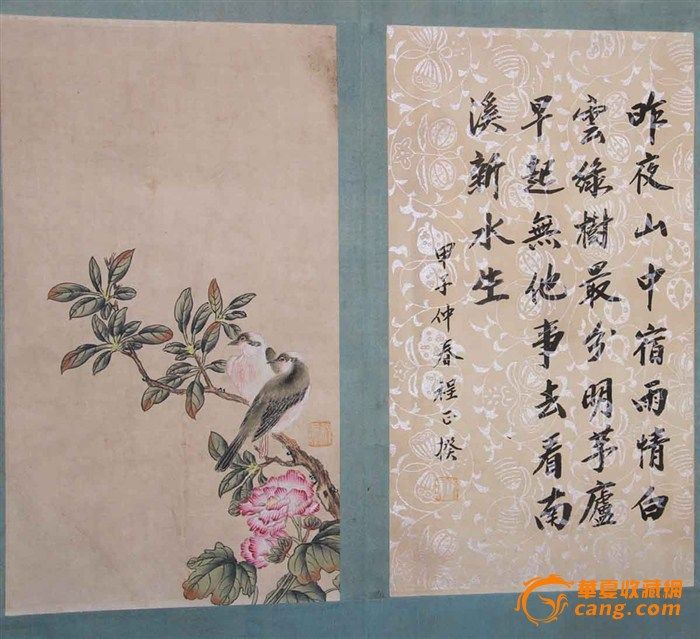 昨夜山中宿雨情白
雲綠樹最分明茅廬
早起無他事去看南
溪新水生
甲子仲春程正揆
華夏收藏網
cang.com